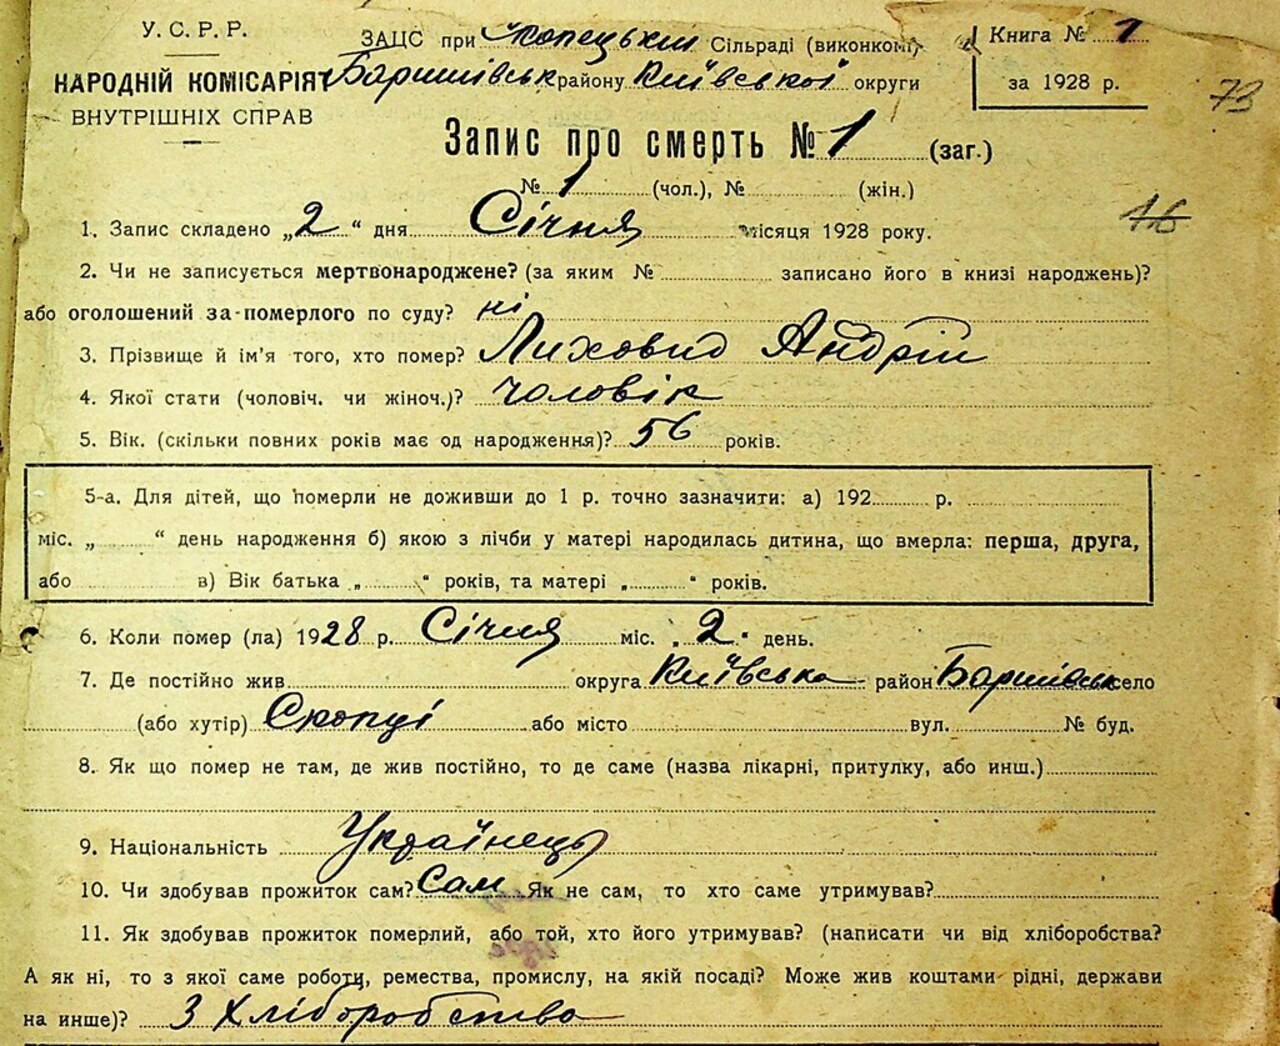 У. С. Р. Р.
НАРОДНІЙ КОМІСАРІЯТ
ВНУТРІШНІХ СПРАВ
ЗАЦС при Скопецький Сільраді (виконкомі)
Баришівськ району Київської округи
Книга № 1
за 1928 р.
73
Запис про смерть № 1 (заг.)
№ 1 (чол.), № (жін.)
16
1. Запис складено „2“ дня Січня місяця 1928 року.
2. Чи не записується мертвонароджене? (за яким № записано його в книзі народжень)?
або оголошений за-померлого по суду? ні
3. Прізвище й ім'я того, хто помер? Лиховид Андрій
4. Якої стати (чоловіч. чи жіноч.)? чоловік
5. Вік. (скільки повних років має од народження)? 56 років.
5-а. Для дітей, що померли не доживши до 1 р. точно зазначити: а) 192 р.
міс. „ “ день народження б) якою з лічби у матері народилась дитина, що вмерла: перша, друга,
або в) Вік батька „ “ років, та матері „ “ років.
6. Коли помер (ла) 1928 р. Січня міс. „2“ день.
7. Де постійно жив округа Київська район Баришівськ село
(або хутір) Скопці або місто вул. № буд.
8. Як що помер не там, де жив постійно, то де саме (назва лікарні, притулку, або инш.)
9. Національність Українець
10. Чи здобував прожиток сам? Сам Як не сам, то хто саме утримував?
11. Як здобував прожиток померлий, або той, хто його утримував? (написати чи від хліборобства?
А як ні, то з якої саме роботи, ремества, промислу, на якій посаді? Може жив коштами рідні, держави
на инше)? З Хліборобства